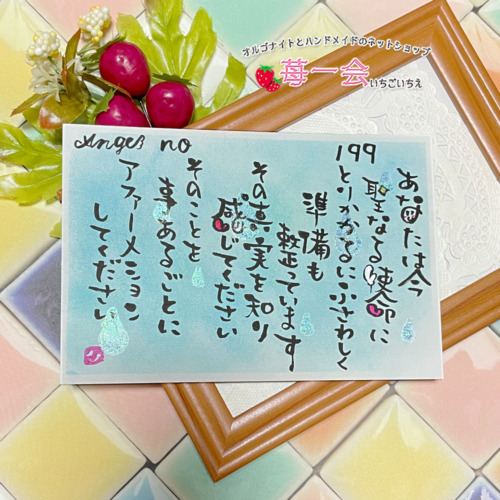 オルゴナイトとハンドメイドのネットショップ
苺一会
いちごいちえ
Angel no
199
あなたは今
聖なる使命に
とりかかるにふさわしく
準備も
整っています
その真実を知り
感じてください
そのことを
事あるごとに
アファーメーション
してください